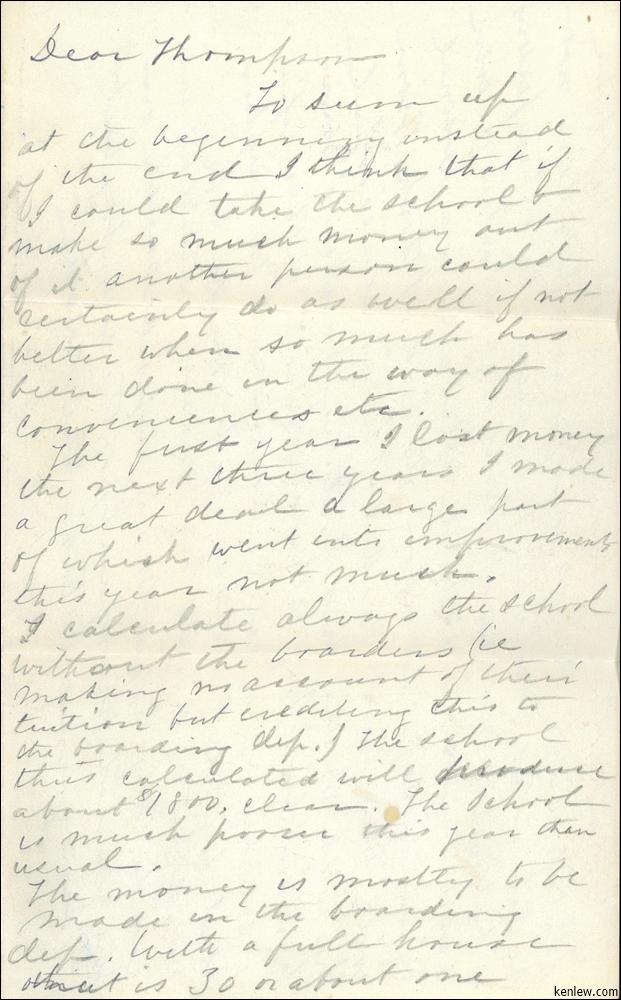 Dear Thompson
To sum up
at the beginning instead
of the end I think that if
I could take the school &
make so much money out
of it another person could
certainly do as well if not
better when so much has
been done in the way of
conveniences etc.
The first year I lost money
the next three years I made
a great deal a large part
of which went into improvements
this year not much.
I calculate always the school
without the boarders (ie
making no account of their
tuition but crediting this to
the boarding dep.) The school
thus calculated will produce
about $1800. clear. The school
is much poorer this year than
usual.
The money is mostly to be
made in the boarding
dep. With a full house
that is 30 or about one
kenlew.com